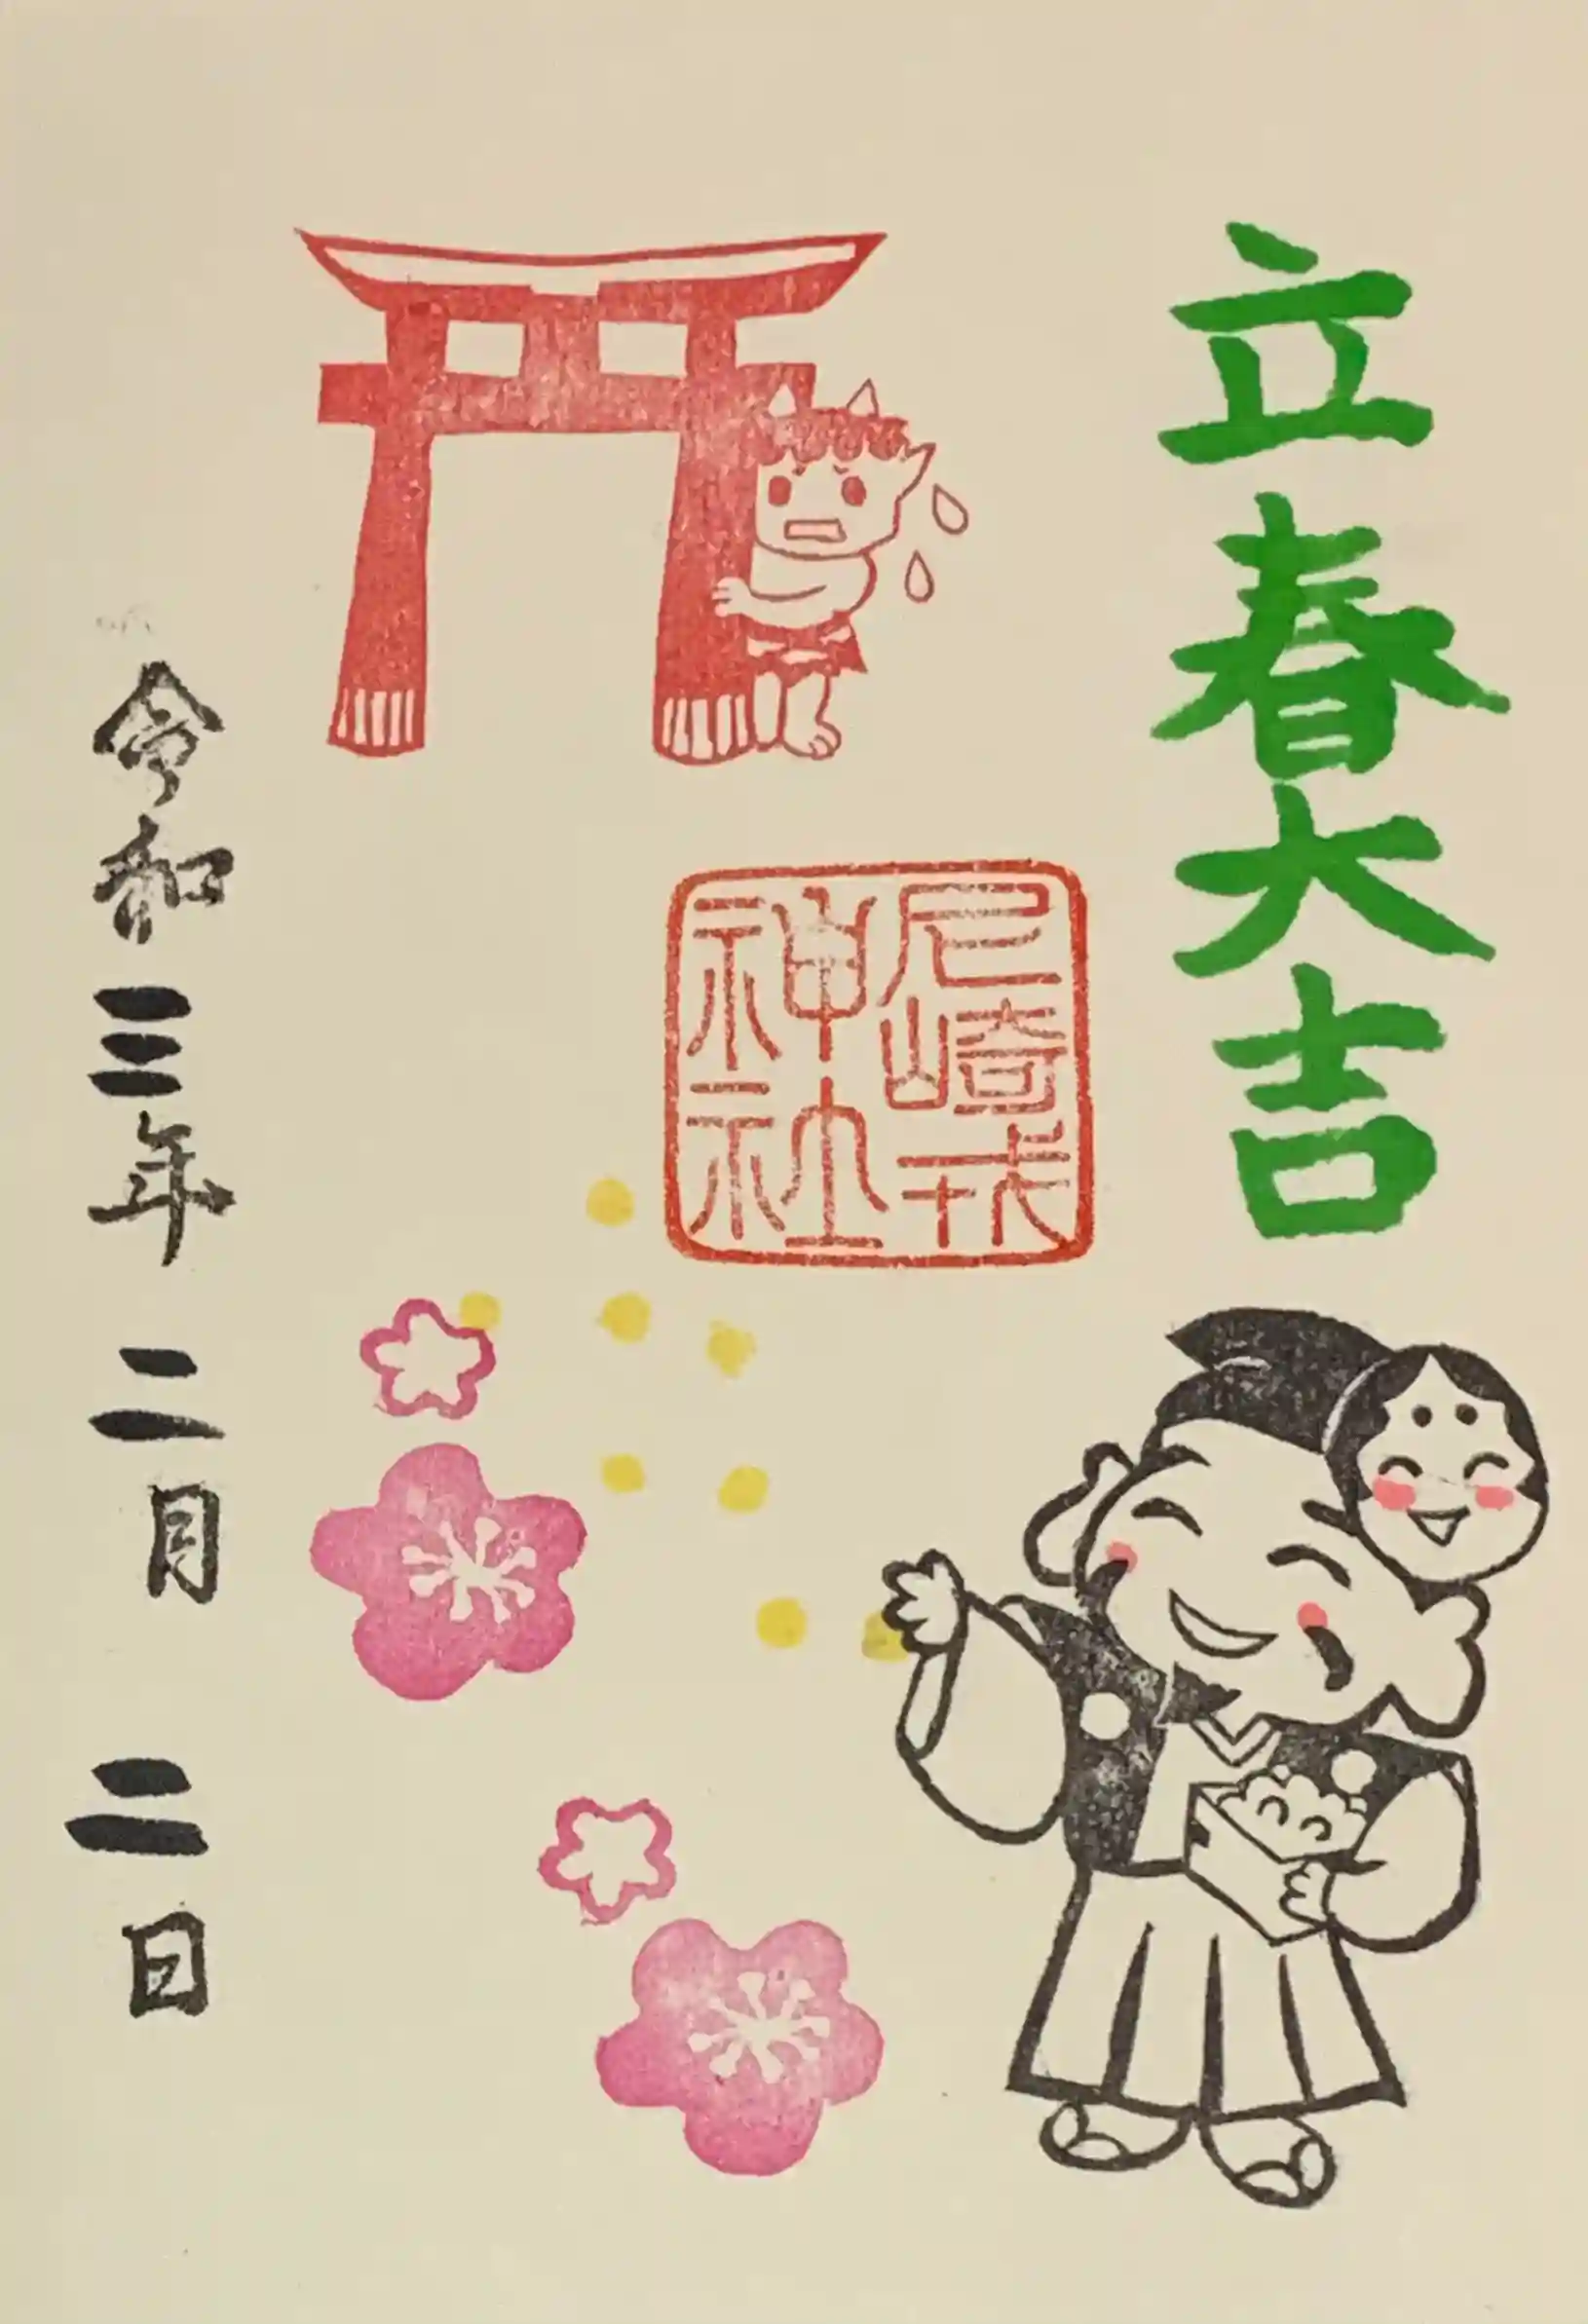 立春大吉
尼崎戎
神社
令和三年 二月 二日